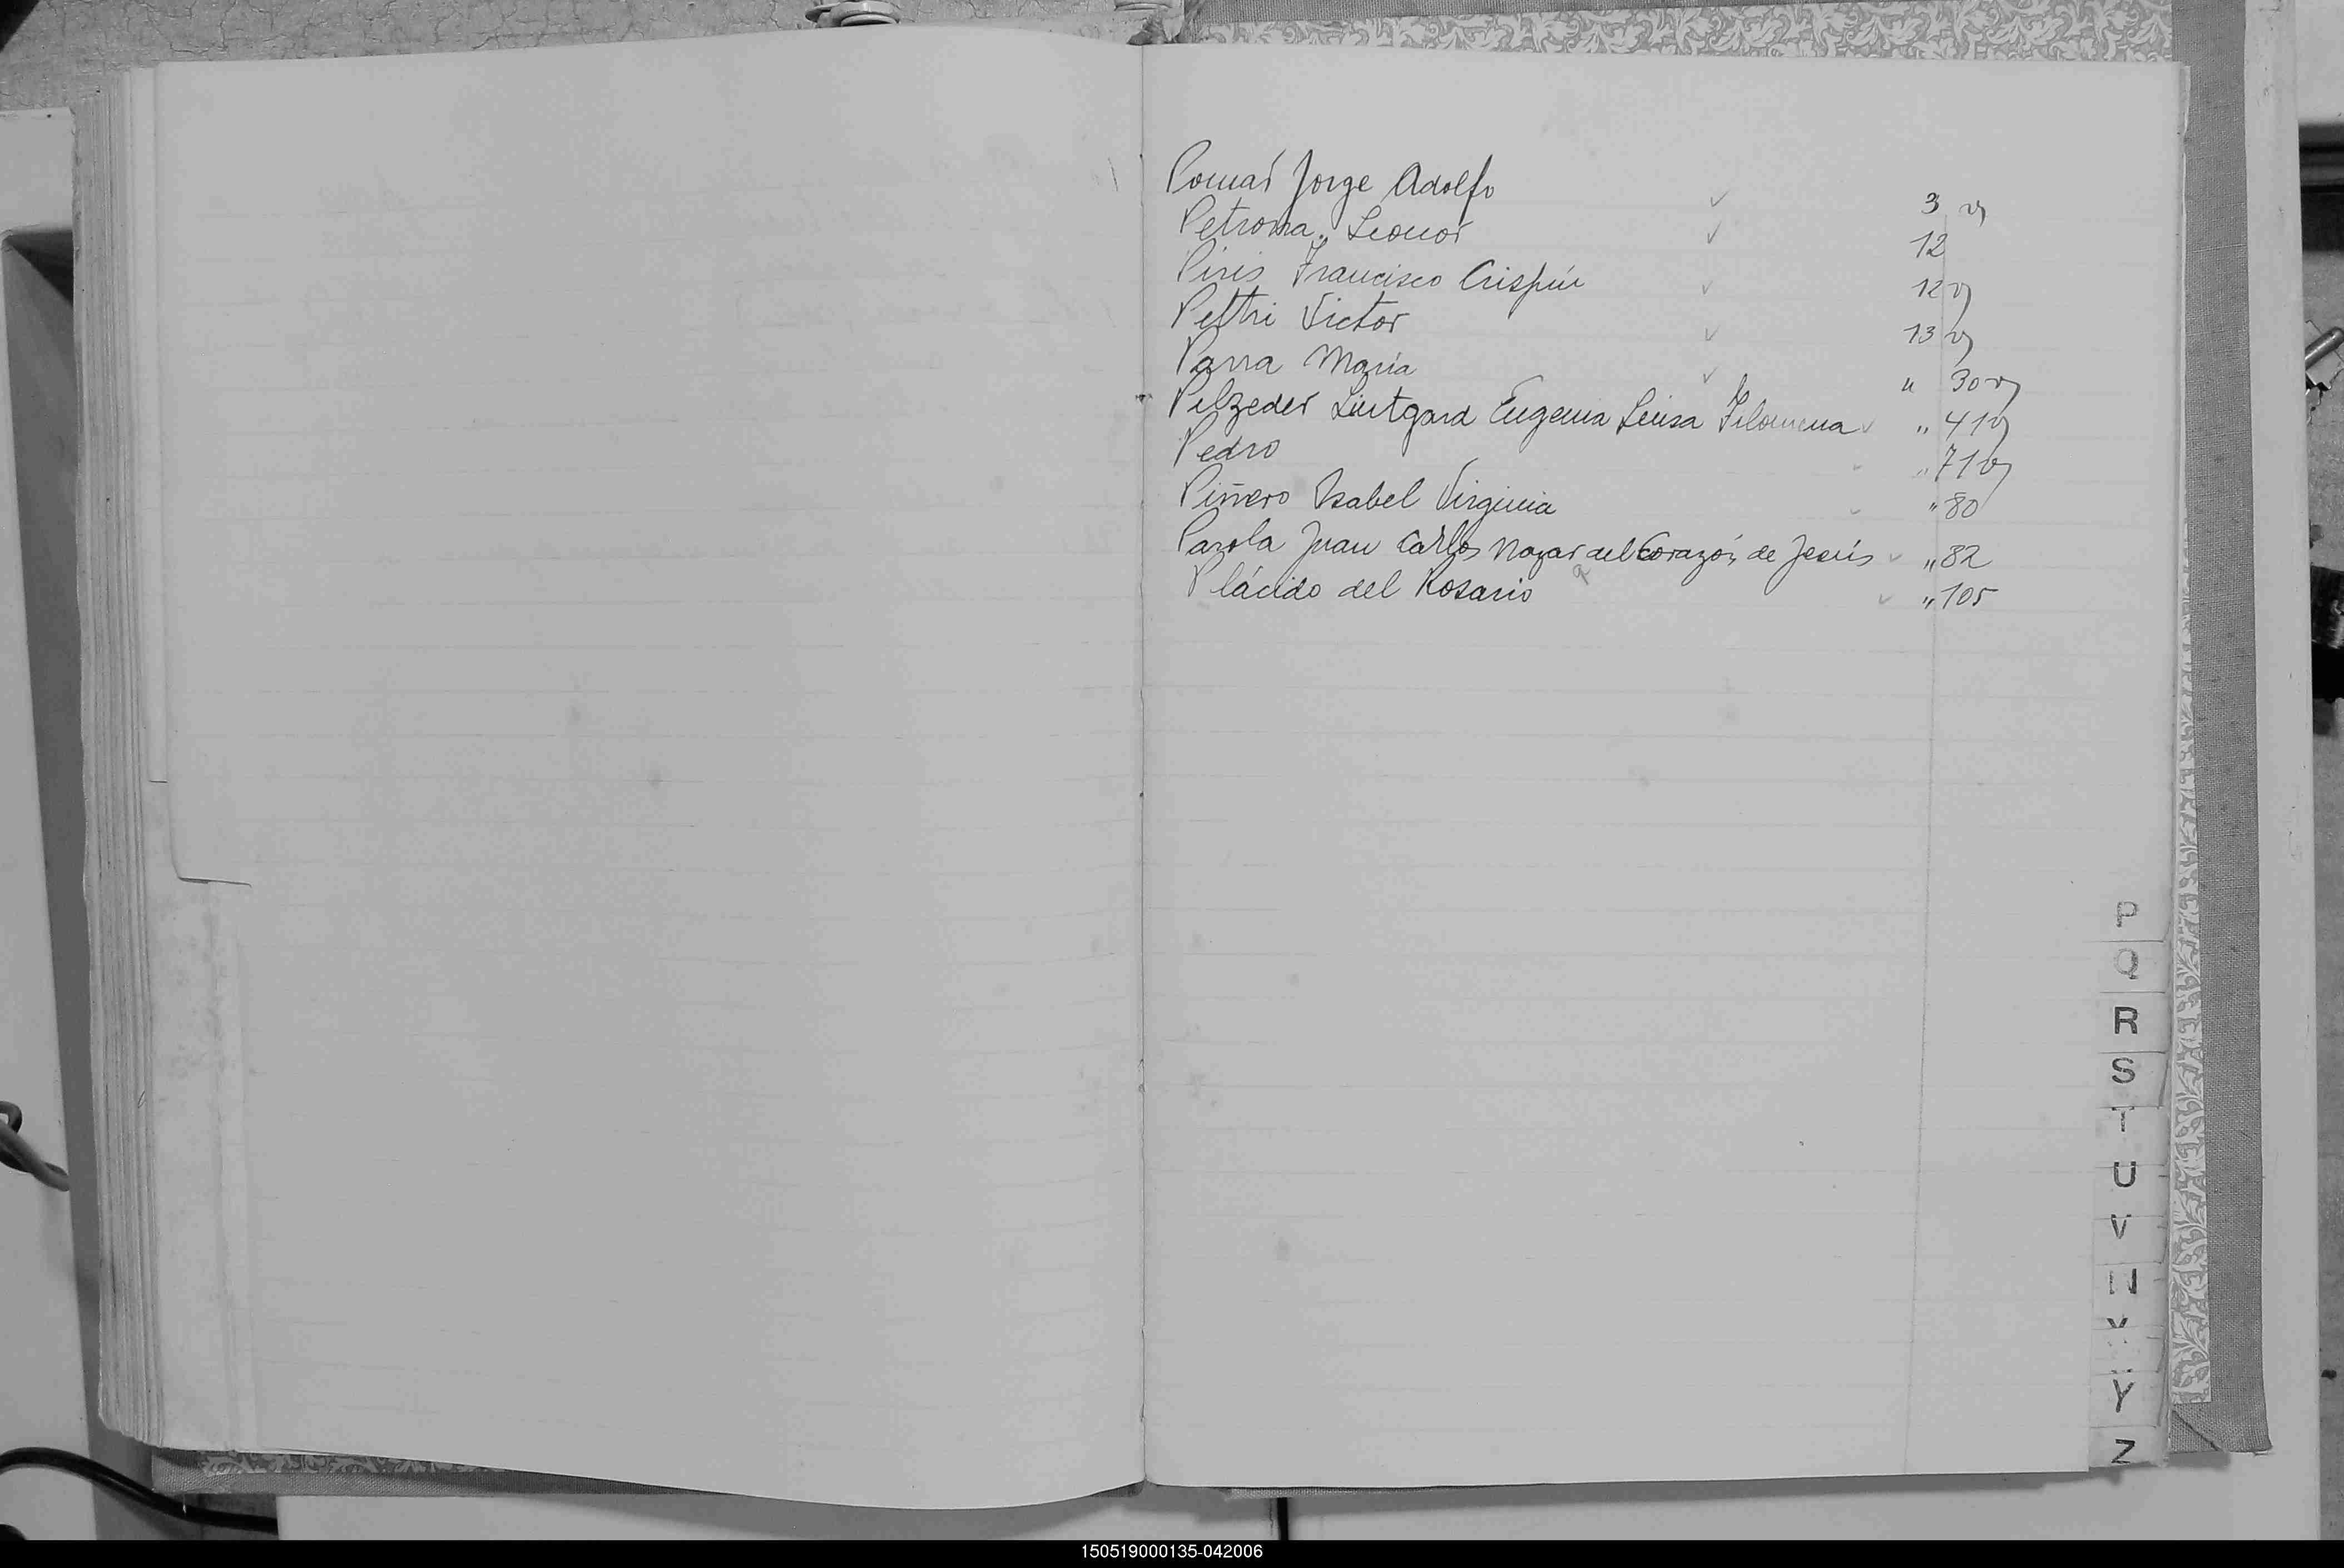 Pomar Jorge Adolfo ✓ 3 v
Petrona Leonor ✓ 12
Piris Francisco Crispín ✓ 12 v
Pettri Victor ✓ 13 v
Parra María ✓ " 30 v
Pelzeder Liutgard Eugenia Luisa Filomena ✓ " 41 v
Pedro " 71 v
Piñero Isabel Virginia ✓ " 80
Parola Juan Carlos Nazar del Corazón de Jesús ✓ " 82
Plácido del Rosario ✓ " 105
P
Q
R
S
T
U
V
Y
Z
150519000135-042006